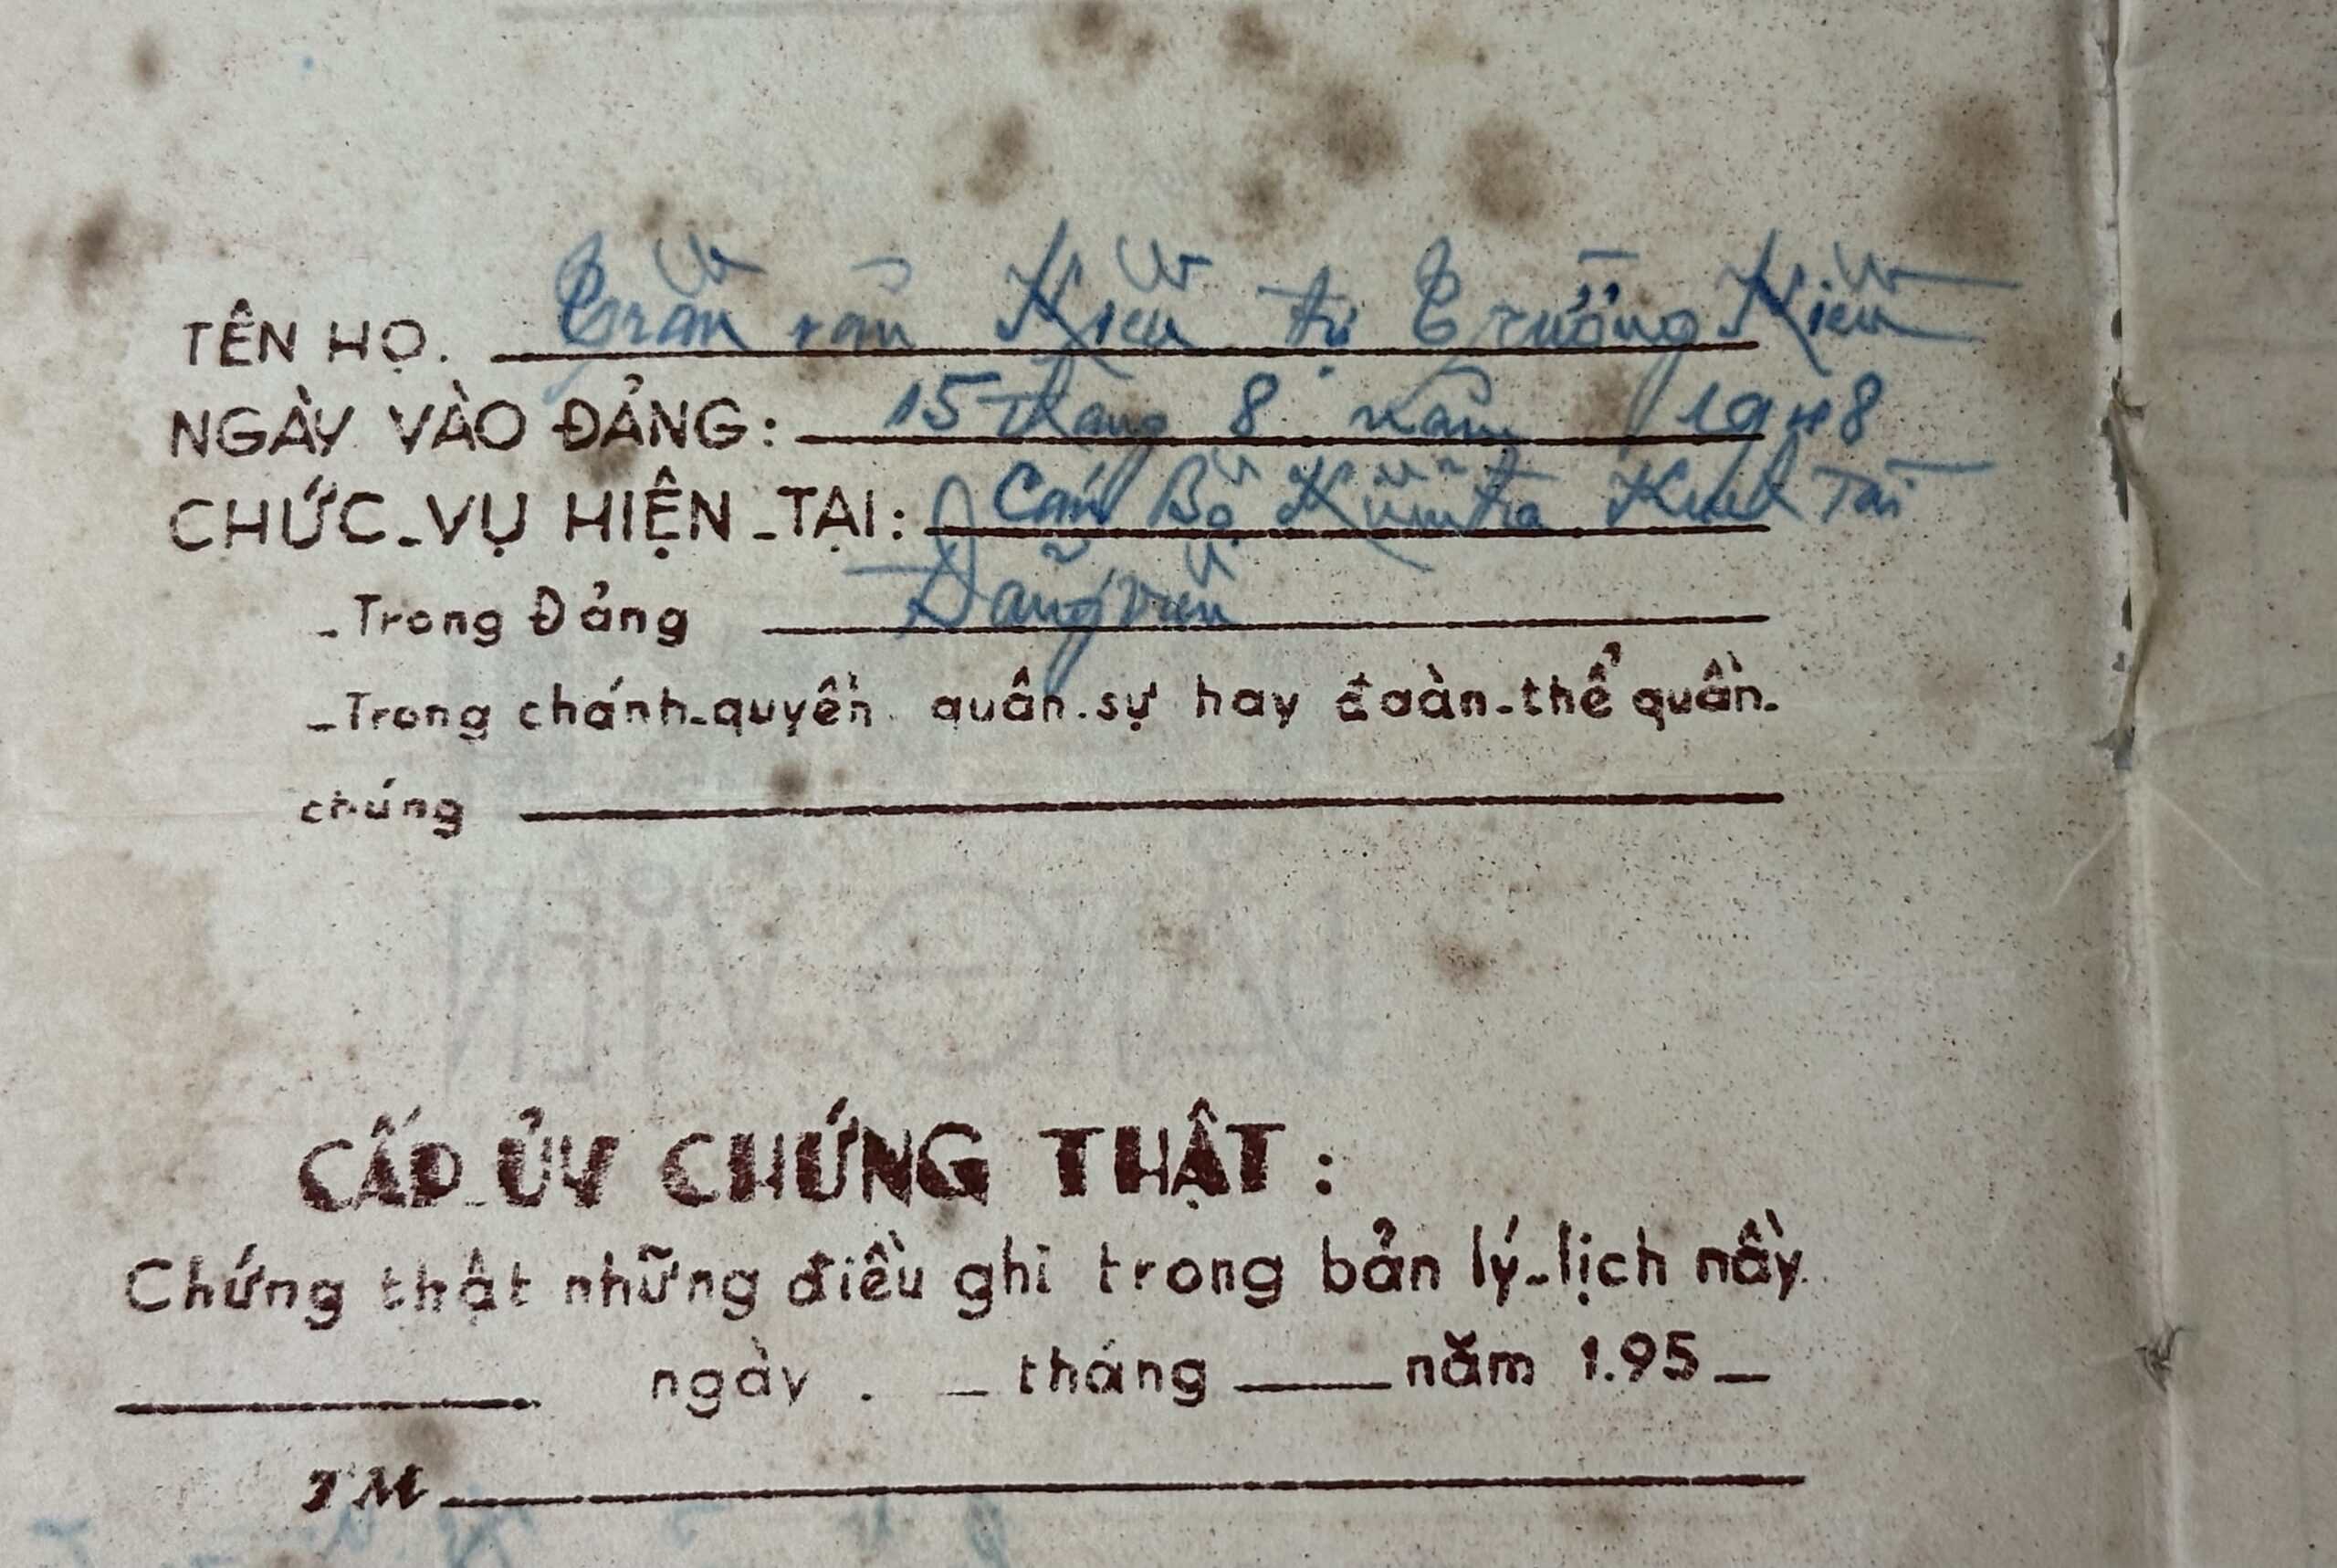 TÊN HỌ. Trần văn Kiều tự Trường Kiều
NGÀY VÀO ĐẢNG: 15 Tháng 8 năm 1948
CHỨC-VỤ HIỆN-TẠI: Cán Bộ Kiểm tra Kinh Tài
-Trong Đảng Đảng viên
-Trong chánh-quyền quân.sự hay đoàn-thể quần.
chúng
CẤP-ỦY CHỨNG THẬT:
Chứng thật những điều ghi trong bản lý-lịch nầy.
ngày tháng năm 1.95
TM